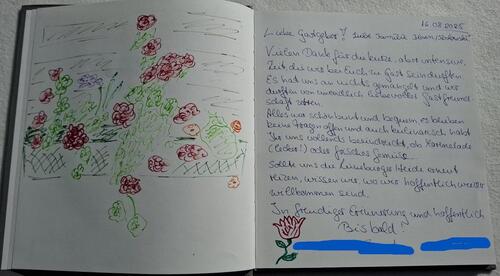 16.08.2025
Liebe Gastgeber! Liebe Familie
Vielen Dank für die kurze, aber intensive
Zeit, die wir bei Euch zu Gast sein durften.
Es hat uns an nichts gemangelt und wir
durften von unendlich liebevoller Gastfreund-
schaft zehren.
Alles war schön bunt und bequem es blieben
keine Fragen offen und auch kulinarisch habt
Ihr uns vollends beeindruckt, ob Marmelade
(lecker!) oder frisches Gemüse.
Sollte uns die Lüneburger Heide erneut
reizen, wissen wir, wo wir hoffentlich wieder
willkommen sind.
In freudiger Erinnerung und hoffentlich
Bis bald!